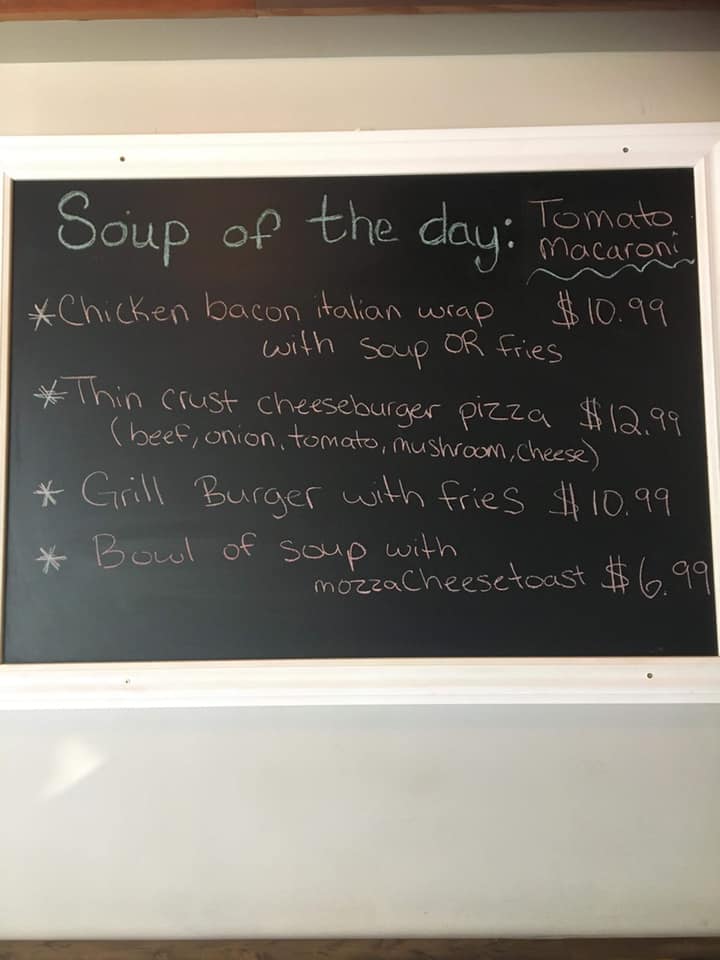 Soup of the day: Tomato
Macaroni
*Chicken bacon italian wrap $10.99
with soup OR fries
*Thin crust cheeseburger pizza $12.99
(beef, onion, tomato, mushroom, cheese)
* Grill Burger with fries $10.99
* Bowl of soup with
mozzaCheesetoast $6.99